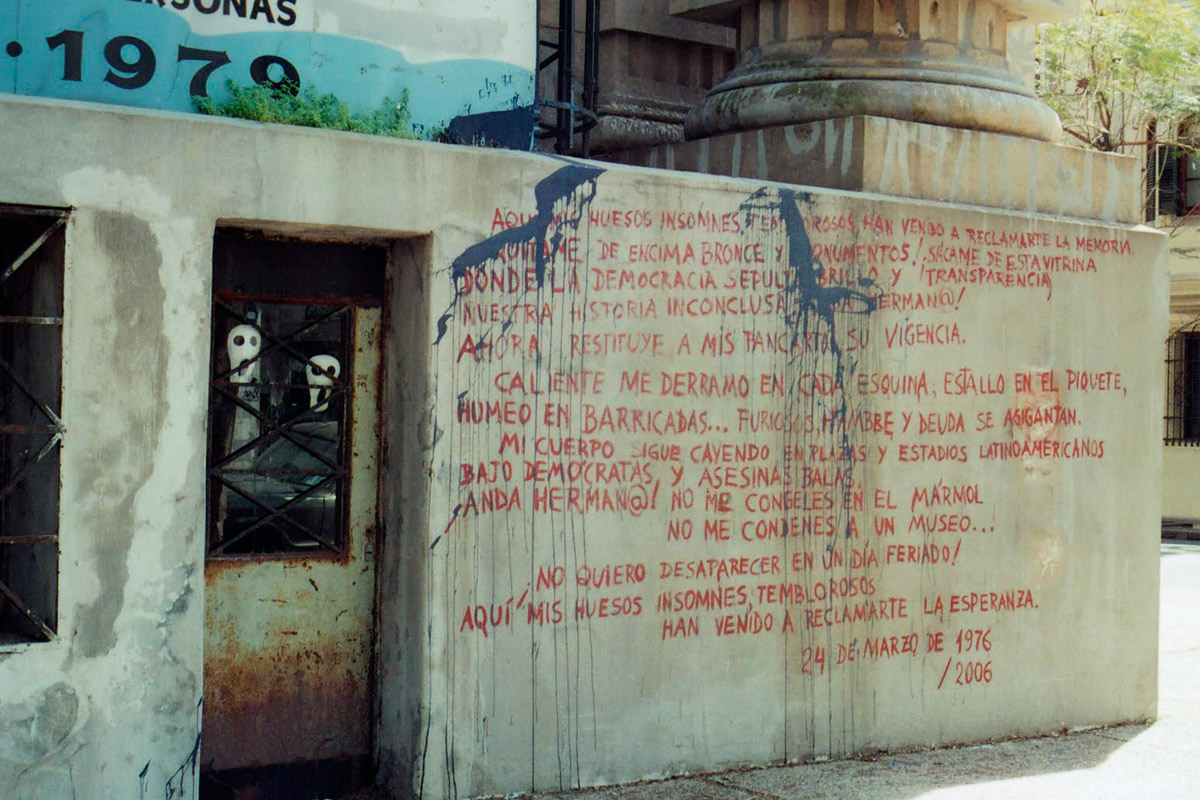 ERSONAS
· 1979
AQUÍ MIS HUESOS INSOMNES, TEMBLOROSOS, HAN VENIDO A RECLAMARTE LA MEMORIA.
QUITAME DE ENCIMA BRONCE Y MONUMENTOS! SÁCAME DE ESTA VITRINA
DONDE LA DEMOCRACIA BRILLO Y TRANSPARENCIA)
NUESTRA HISTORIA INCONCLUSA HERMAN@!
AHORA RESTITUYE A MIS PANCARTAS SU VIGENCIA.
CALIENTE ME DERRAMO EN CADA ESQUINA, ESTALLO EN EL PIQUETE,
HUMEO EN BARRICADAS... FURIOSOS, HAMBRE Y DEUDA SE AGIGANTAN.
MI CUERPO SIGUE CAYENDO EN PLAZAS Y ESTADIOS LATINOAMERICANOS
BAJO DEMÓCRATAS Y ASESINAS BALAS.
¡ANDA HERMAN@! NO ME CONGELES EN EL MÁRMOL
NO ME CONDENES A UN MUSEO...
NO QUIERO DESAPARECER EN UN DÍA FERIADO!
AQUÍ MIS HUESOS INSOMNES, TEMBLOROSOS
HAN VENIDO A RECLAMARTE LA ESPERANZA.
24 DE MARZO DE 1976
/2006